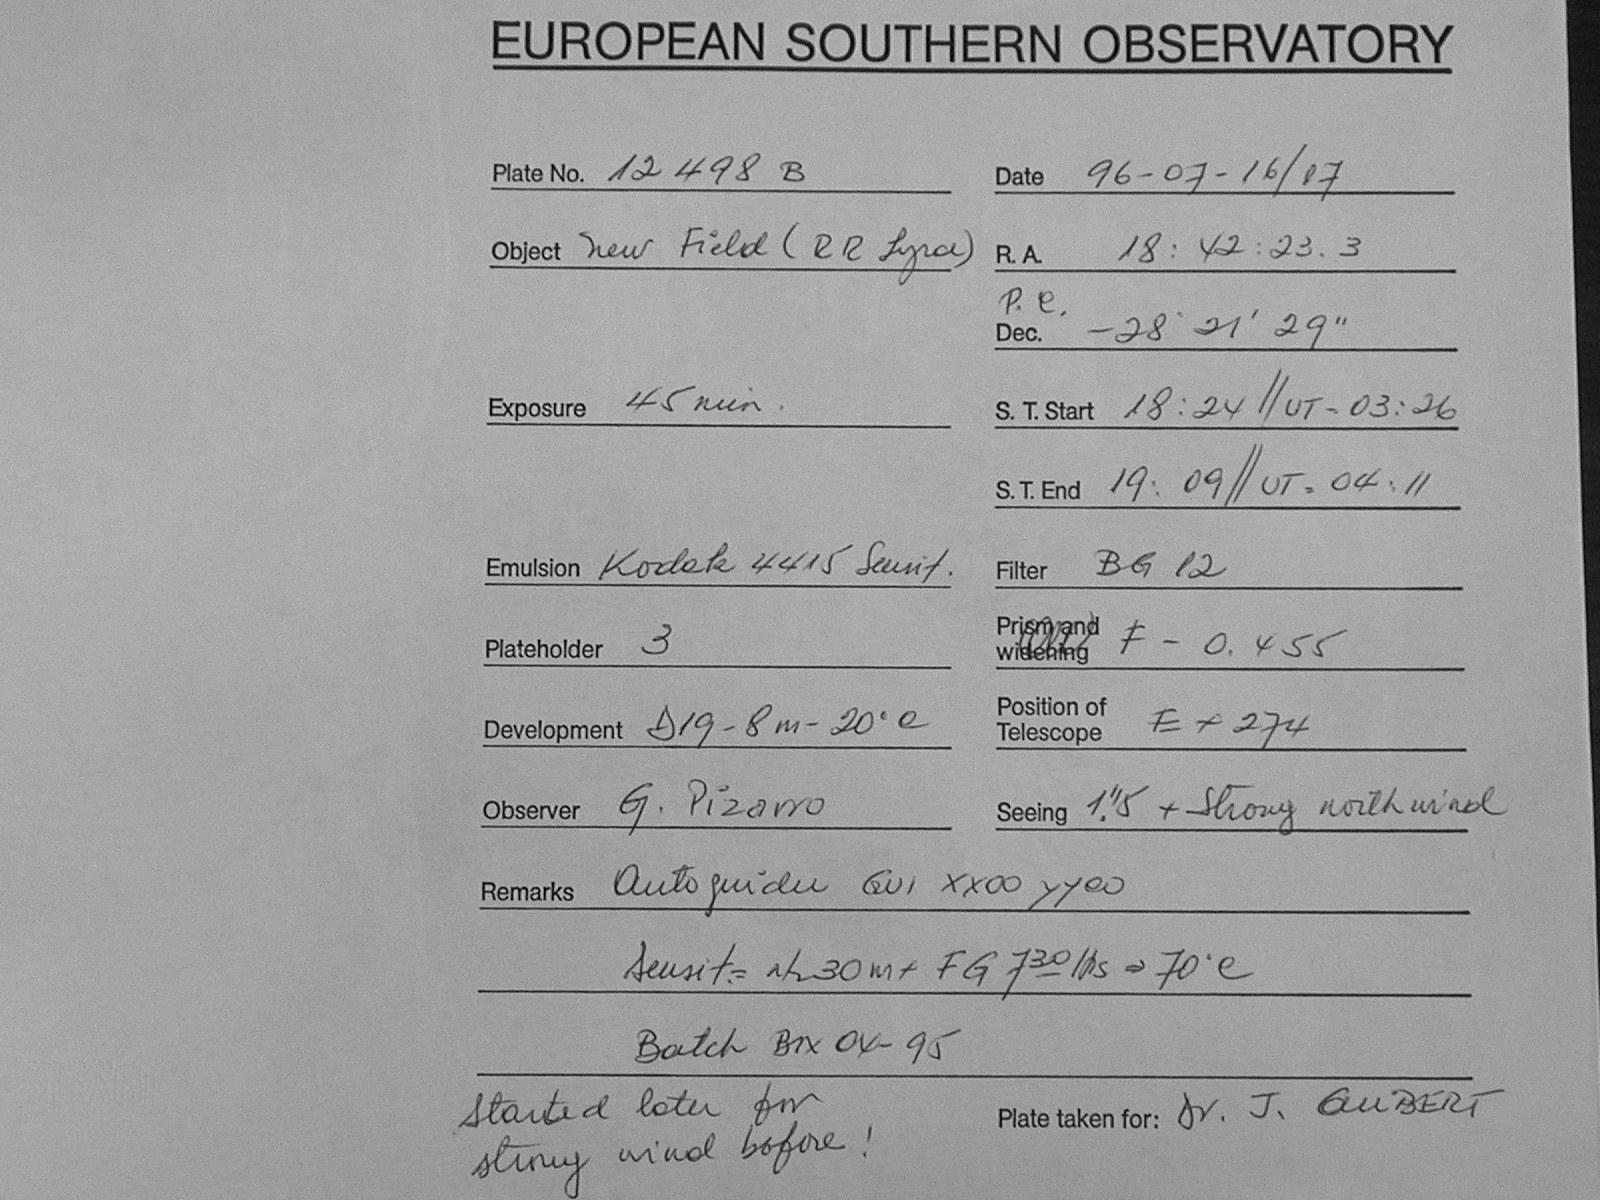 EUROPEAN SOUTHERN OBSERVATORY
Plate No. 12498 B
Date 96-07-16/17
Object New Field (RR Lyra)
R. A. 18:42:23.3
P. e.
Dec. -28° 21' 29"
Exposure 45 min.
S. T. Start 18:24 // UT - 03:26
S. T. End 19:09 // UT = 04:11
Emulsion Kodak 4415 Sensit.
Filter BG 12
Plateholder 3
Prism and widening F - 0.455
Development D19-8m-20°C
Position of Telescope E + 274
Observer G. Pizarro
Seeing 1."5 + Strong north wind
Remarks Autoguider GV1 XX00 YY00
Sensit = N2 30m + FG 7 30 hs 70°C
Batch 04-95
Started later for
strong wind before!
Plate taken for: Dr. J. GUIBERT